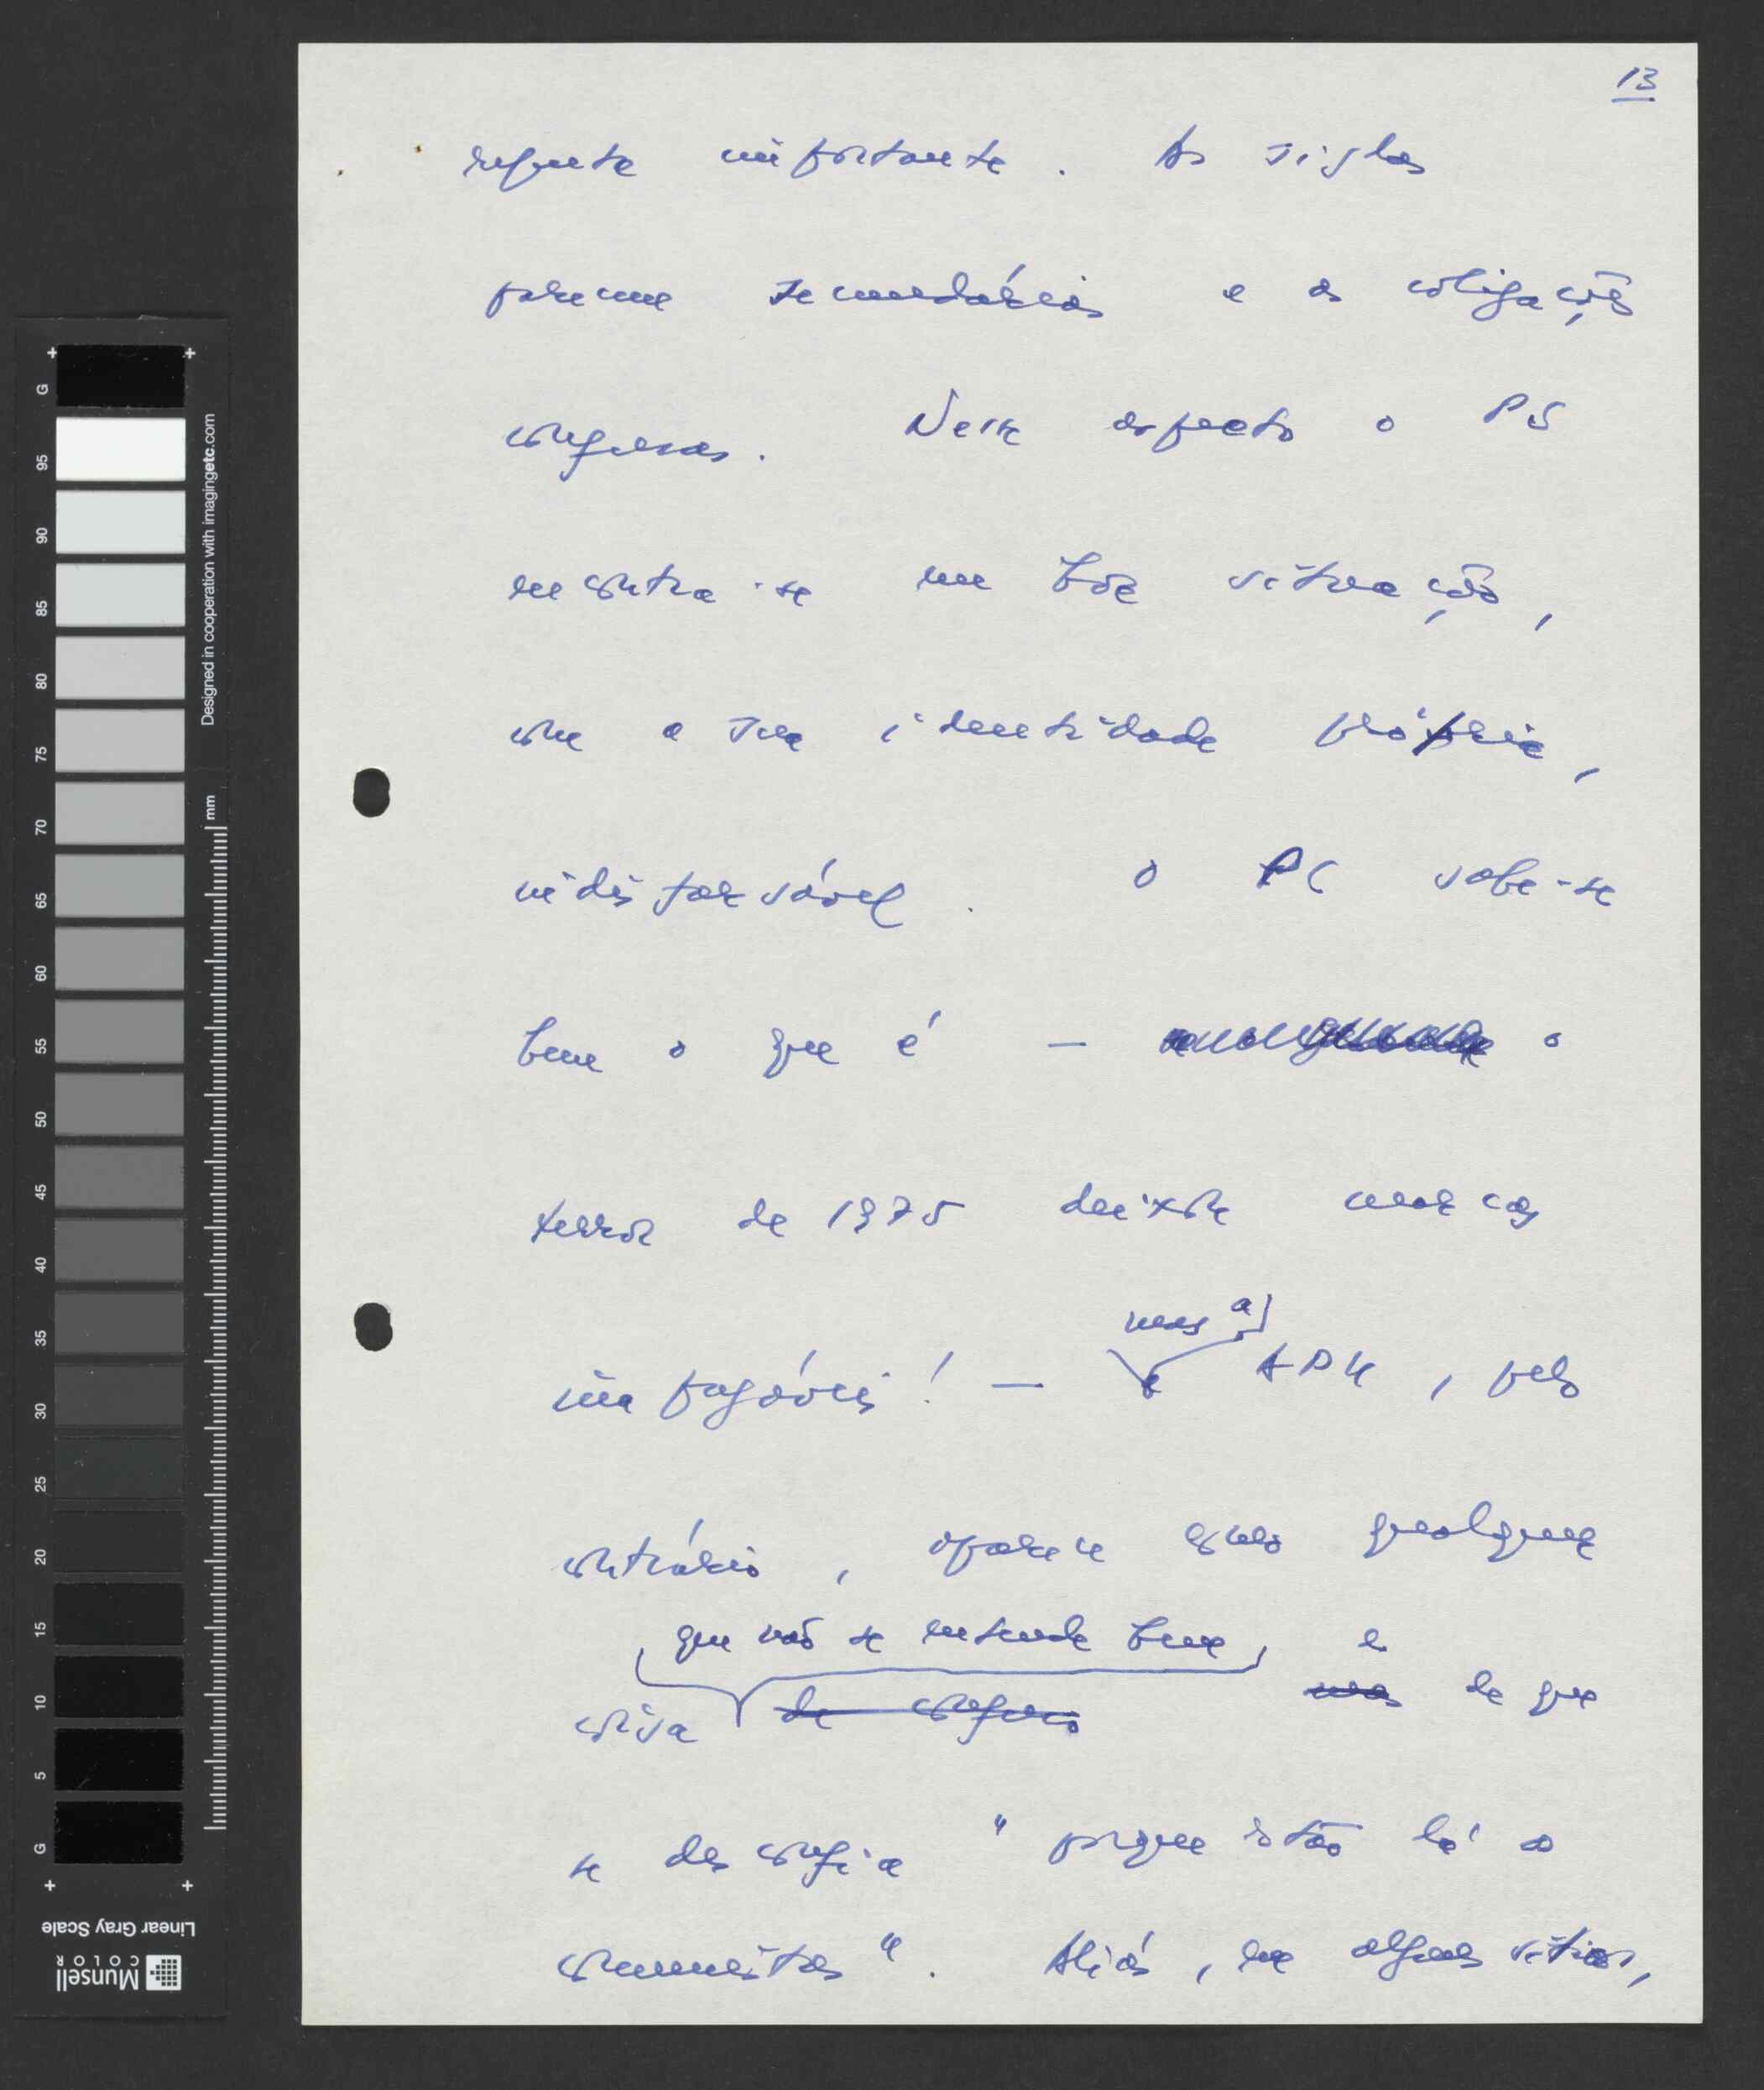 13
importante. As siglas
parecem secundárias e as coligações
confusas. Nesse aspecto o PS
encontra-se em boa situação,
com a sua identidade própria,
indisfarçável. O PC sabe-se
bem o que é — o
terror de 1975 deixou marcas
inapagáveis! — mas a APU, pelo
contrário, aparece como qualquer
que não se entende bem, e
coisa de confuso mas de que
se desconfia "porque estão lá os
comunistas". Aliás, em alguns sítios,
G
95
90
85
80
75
70
65
60
55
50
45
40
35
30
25
20
15
10
5
G
mm
Designed in cooperation with imagingetc.com
Linear Gray Scale
Munsell
COLOR